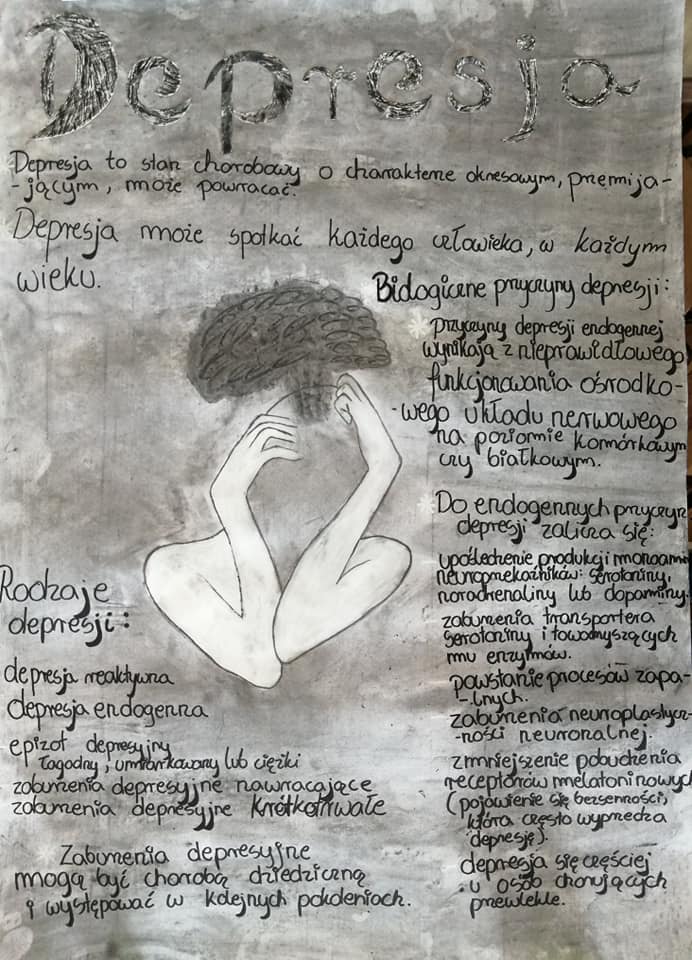 Depresja
Depresja to stan chorobowy o charakterze okresowym, przemija-
-jącym, może powracać.
Depresja może spotkać każdego człowieka, w każdym
wieku.
Biologiczne przyczyny depresji:
Przyczyny depresji endogennej
wynikają z nieprawidłowego
funkcjonowania ośrodko-
-wego układu nerwowego
na poziomie komórkowym
czy białkowym.
Do endogennych przyczyn
depresji zalicza się:
upośledzenie produkcji monoami
neuroprzekaźników: serotoniny,
noradrenaliny lub dopaminy.
zaburzenia transportera
serotoniny i towarzyszących
mu enzymów.
powstanie procesów zapa-
-lnych.
zaburzenia neuroplastycz-
-ności neuronalnej.
zmniejszenie pobudzenia
receptorów melatoninowych
(pojawienie się bezsenności,
która często wyprzedza
depresję).
depresja się częściej
u osób chorujących
przewlekle.
Rodzaje
depresji:
depresja reaktywna
depresja endogenna
epizot depresyjny
łagodny, umiarkowany lub ciężki
zaburzenia depresyjne nawracające
zaburzenia depresyjne krótkotrwałe
Zaburzenia depresyjne
mogą być chorobą dziedziczną
i występować w kolejnych pokoleniach.